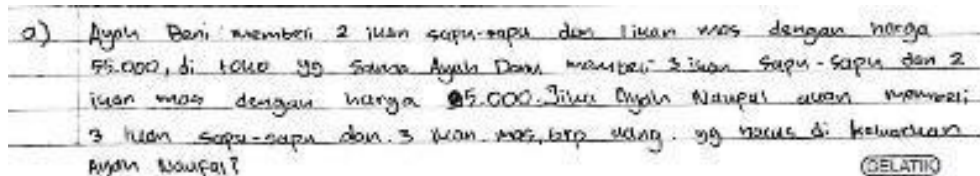 a) Ayah Deni membeli 2 ikan sapu-sapu dan 1 ikan mas dengan harga
55.000, di toko yg sama Ayah Dani membeli 3 ikan sapu-sapu dan 2
ikan mas dengan harga 5.000. Jika Ayah Naupal akan membeli
3 ikan sapu-sapu dan 3 ikan mas, brp uang yg harus di keluarkan
Ayah Naufal?
GELATIK